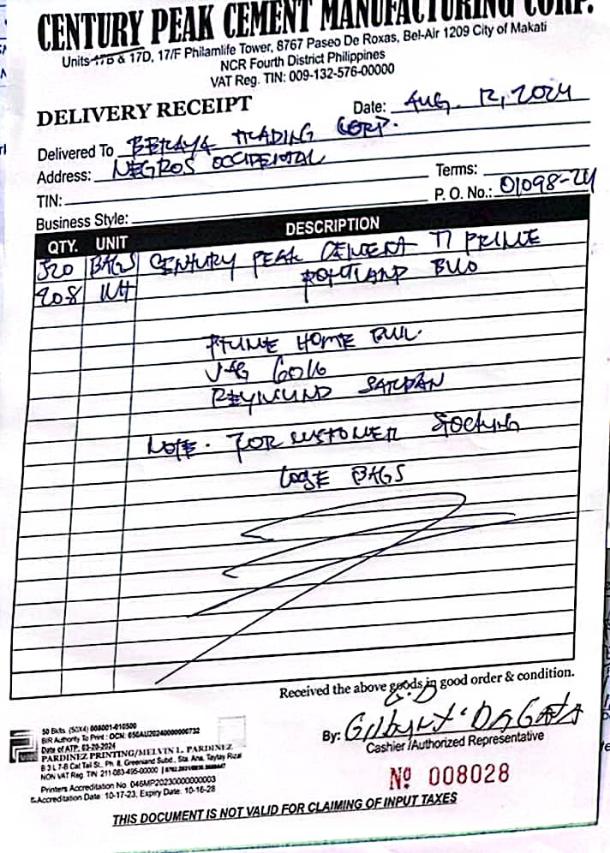 CENTURY PEAK CEMENT MANUFACTURING CORP.
Units 17B & 17D, 17/F Philamlife Tower, 8767 Paseo De Roxas, Bel-Air 1209 City of Makati
NCR Fourth District Philippines
VAT Reg. TIN: 009-132-576-00000
DELIVERY RECEIPT
Date: AUG. 12, 2024
Delivered To BERAYA TRADING CORP.
Address: NEGROS OCCIDENTAL
TIN: Terms:
Business Style: P. O. No.: 01098-24
QTY. UNIT DESCRIPTION
520 BAGS CENTURY PEAK CEMENT T1 PRIME
PORTLAND
HOME
6016
REYMUND
NOTE. FOR CUSTOMER
LOOSE BAGS
Received the above goods in good order & condition.
By:
Cashier /Authorized Representative
Nº 008028
50 Bklts. (50X4) 008001-010500
BIR Authority To Print : OCN: 050AU20240000000732
Date of ATP: 03-20-2024
PARDINEZ PRINTING/MELVIN L. PARDINEZ
B 3 L 7-B Cat Tail St., Ph. 8, Greenland Subd., Sta. Ana, Taytay Rizal
NON VAT Reg. TIN 211-083-495-00000
Printers Accreditation No. 046MP20230000000003
Accreditation Date: 10-17-23, Expiry Date: 10-16-28
THIS DOCUMENT IS NOT VALID FOR CLAIMING OF INPUT TAXES